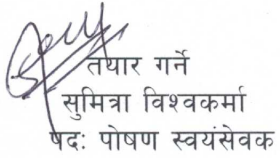 तयार गर्ने
सुमित्रा विश्वकर्मा
पदः पोषण स्वयंसेवक